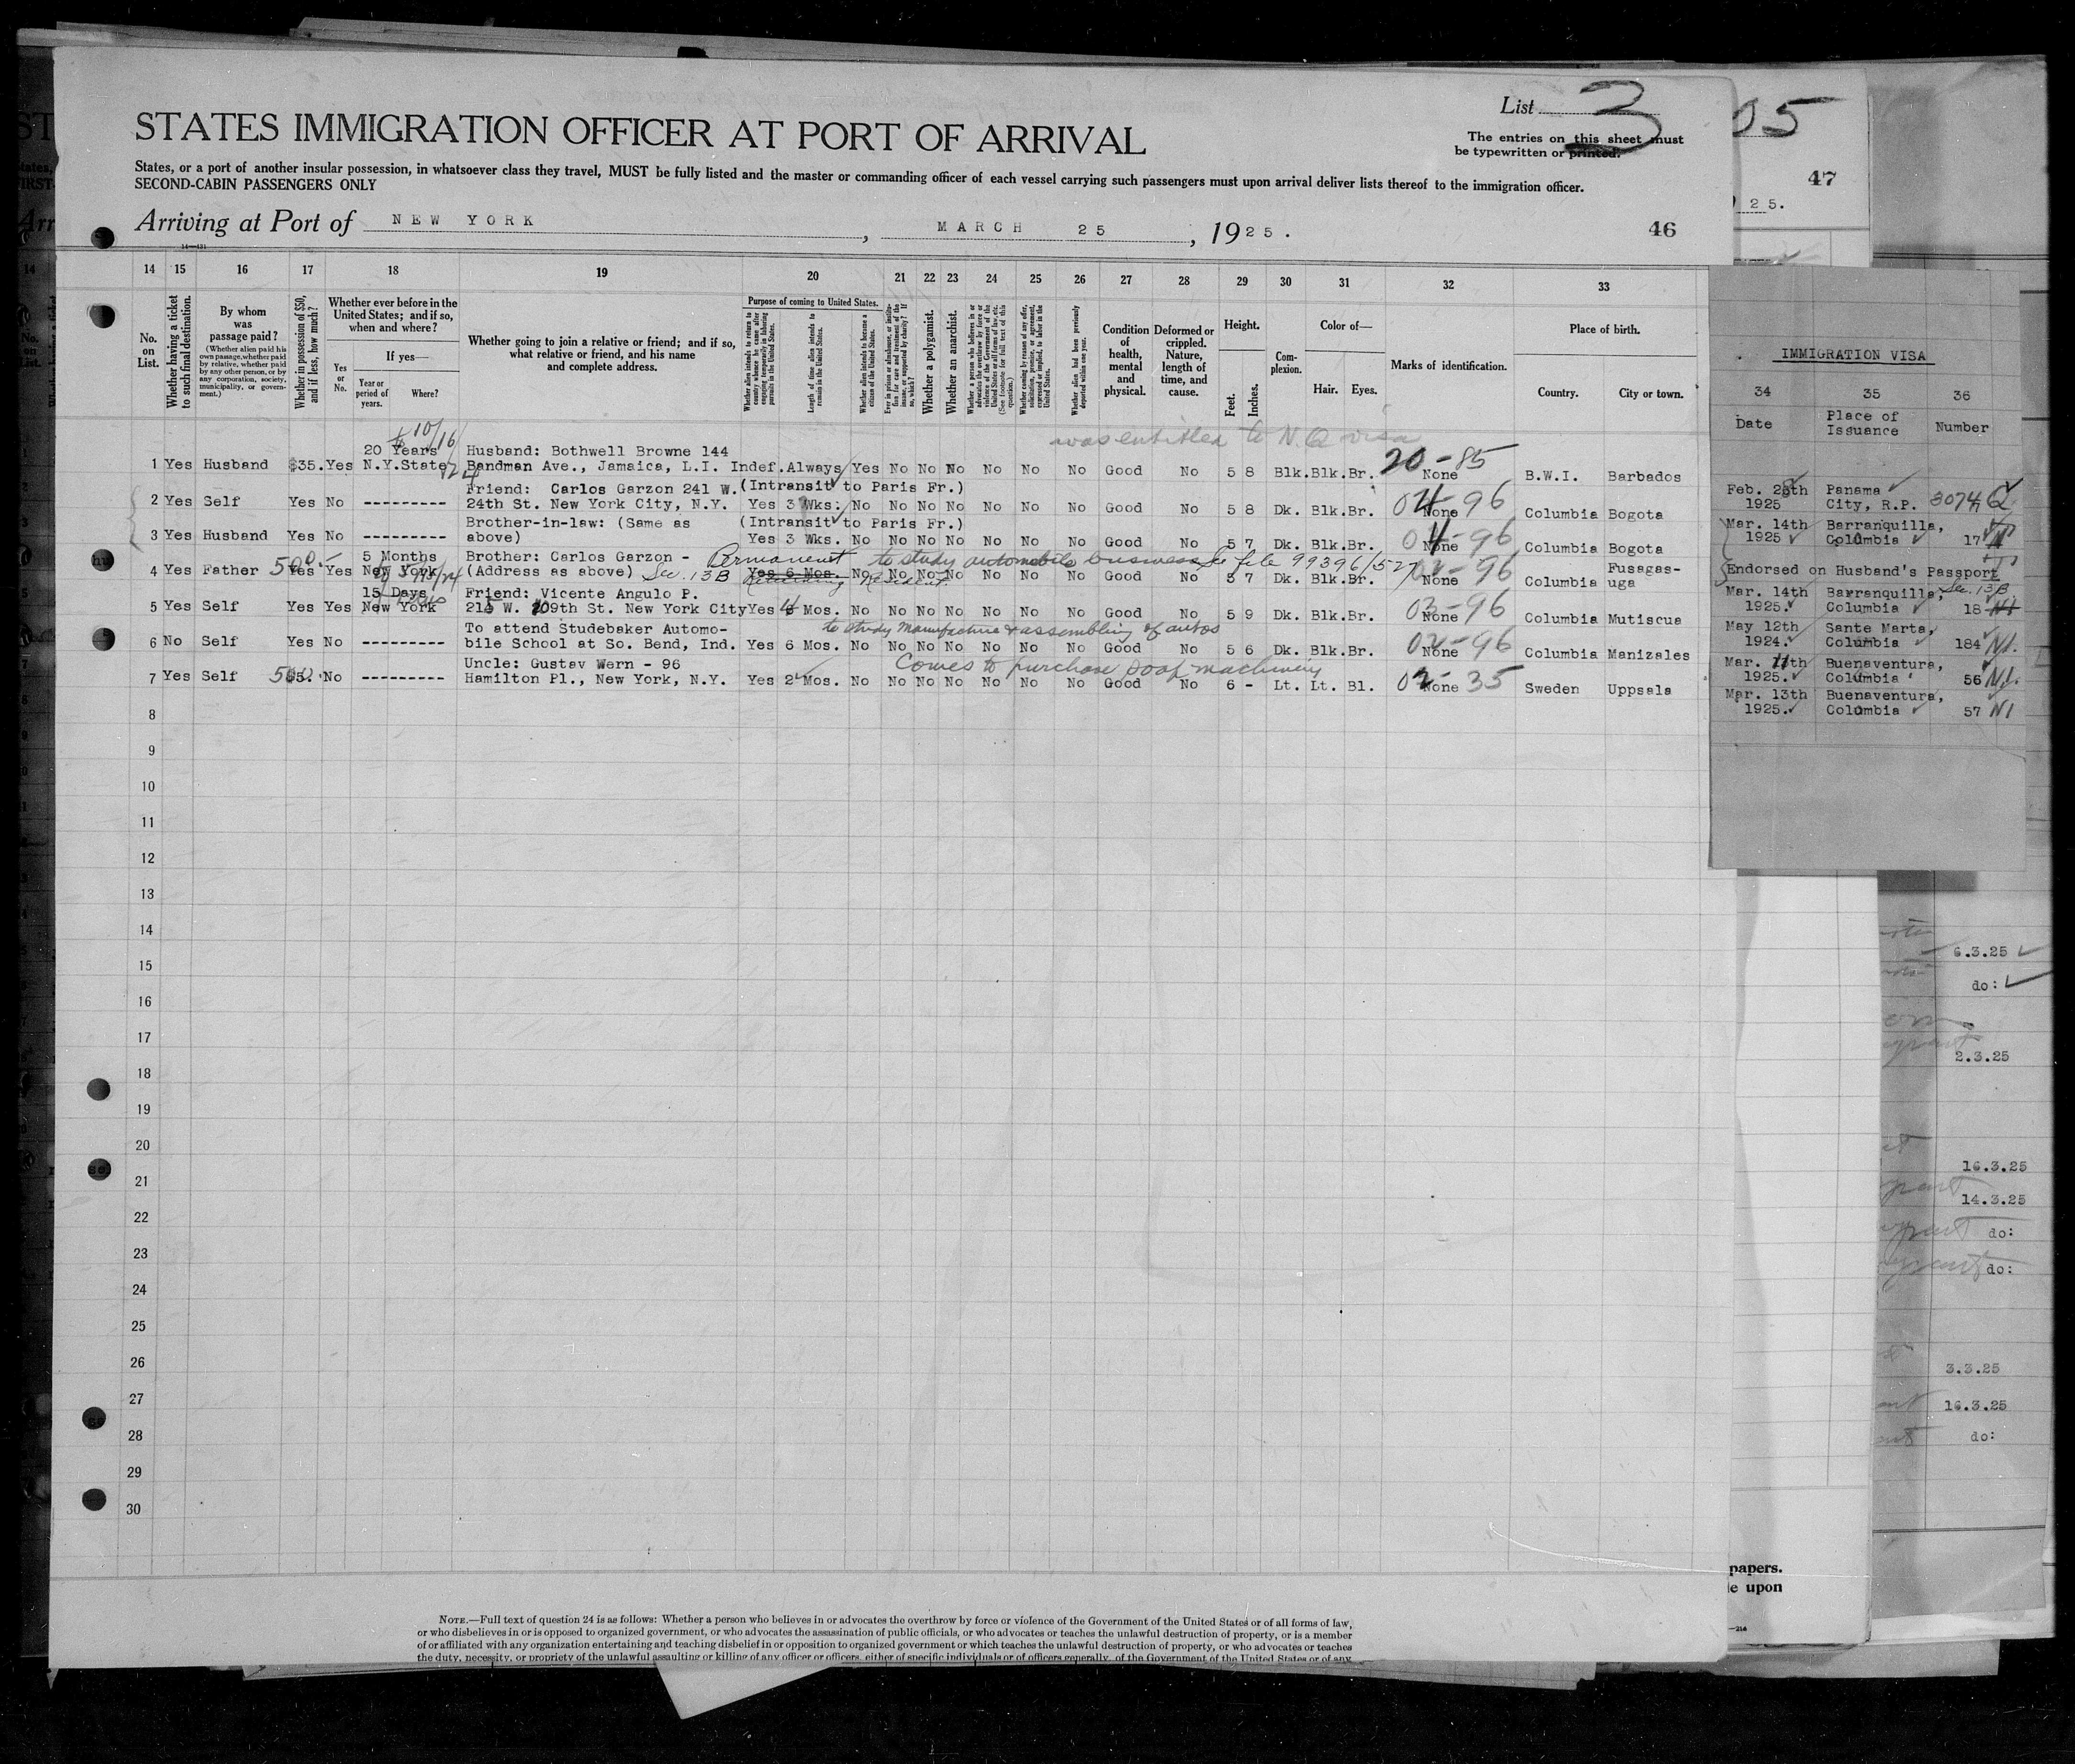 List 3
STATES IMMIGRATION OFFICER AT PORT OF ARRIVAL
The entries on this sheet must
be typewritten or printed.
States, or a port of another insular possession, in whatsoever class they travel, MUST be fully listed and the master or commanding officer of each vessel carrying such passengers must upon arrival deliver lists thereof to the immigration officer.
SECOND-CABIN PASSENGERS ONLY
Arriving at Port of NEW YORK, MARCH 25, 1925. 46
05
47
25.
14 15 16 17 18 19 20 21 22 23 24 25 26 27 28 29 30 31 32 33
No. on List.
Whether having a ticket to such final destination.
By whom was passage paid?
(Whether alien paid his own passage, whether paid by relative, whether paid by any other person, or by any corporation, society, municipality, or government.)
Whether in possession of $50, and if less, how much?
Whether ever before in the United States; and if so, when and where?
If yes—
Yes or No.
Year or period of years.
Where?
Whether going to join a relative or friend; and if so, what relative or friend, and his name and complete address.
Purpose of coming to United States.
Whether alien intends to return to country whence he came after engaging temporarily in laboring pursuits in the United States.
Length of time alien intends to remain in the United States.
Whether alien intends to become a citizen of the United States.
Whether a polygamist.
Whether an anarchist.
Condition of health, mental and physical.
Deformed or crippled. Nature, length of time, and cause.
Height.
Feet. Inches.
Complexion.
Color of—
Hair. Eyes.
Marks of identification.
Place of birth.
Country. City or town.
IMMIGRATION VISA
34 35 36
Date Place of Issuance Number
was entitled to N.Q. visa
20 Years Husband: Bothwell Browne 144
1 Yes Husband $35. Yes N.Y.State Bandman Ave., Jamaica, L.I. Indef. Always Yes No No No No No No Good No 5 8 Blk. Blk. Br. None 20-85 B.W.I. Barbados
Friend: Carlos Garzon 241 W. (Intransit to Paris Fr.)
2 Yes Self Yes No --------- 24th St. New York City, N.Y. Yes 3 Wks. No No No No No No No Good No 5 8 Dk. Blk. Br. None 04-96 Columbia Bogota
Brother-in-law: (Same as (Intransit to Paris Fr.)
3 Yes Husband Yes No --------- above) Yes 3 Wks. No No No No No No No Good No 5 7 Dk. Blk. Br. None 04-96 Columbia Bogota
5 Months Brother: Carlos Garzon - Permanent to study automobile business See file 99396/527 Fusagas-
4 Yes Father 500.- Yes Yes New York (Address as above) Sec. 13B Yes 6 Mos. No No No No No No No Good No 5 7 Dk. Blk. Br. None 04-96 Columbia uga
15 Days Friend: Vicente Angulo P.
5 Yes Self Yes Yes New York 215 W. 109th St. New York City Yes 4 Mos. No No No No No No No Good No 5 9 Dk. Blk. Br. None 03-96 Columbia Mutiscua
To attend Studebaker Automo- to study manufacture & assembling of autos
6 No Self Yes No --------- bile School at So. Bend, Ind. Yes 6 Mos. No No No No No No No Good No 5 6 Dk. Blk. Br. None 02-96 Columbia Manizales
Uncle: Gustav Wern - 96 Comes to purchase soap machinery
7 Yes Self 500. No --------- Hamilton Pl., New York, N.Y. Yes 2 Mos. No No No No No No No Good No 6 - Lt. Lt. Bl. None 02-35 Sweden Uppsala
8
9
10
11
12
13
14
15
16
17
18
19
20
21
22
23
24
25
26
27
28
29
30
Feb. 28th Panama
1925 City, R.P. 3074 Q
Mar. 14th Barranquilla,
1925 Columbia 17
Endorsed on Husband's Passport
Mar. 14th Barranquilla, Sec. 13B
1925. Columbia 18
May 12th Sante Marta,
1924. Columbia 184 N.I.
Mar. 11th Buenaventura,
1925. Columbia 56 N.I.
Mar. 13th Buenaventura,
1925. Columbia 57 NI
6.3.25
do:
2.3.25
16.3.25
14.3.25
do:
do:
3.3.25
16.3.25
do:
papers.
upon
NOTE.—Full text of question 24 is as follows: Whether a person who believes in or advocates the overthrow by force or violence of the Government of the United States or of all forms of law,
or who disbelieves in or is opposed to organized government, or who advocates the assassination of public officials, or who advocates or teaches the unlawful destruction of property, or is a member
of or affiliated with any organization entertaining and teaching disbelief in or opposition to organized government or which teaches the unlawful destruction of property, or who advocates or teaches
the duty, necessity, or propriety of the unlawful assaulting or killing of any officer or officers, either of specific individuals or of officers generally, of the Government of the United States or of any